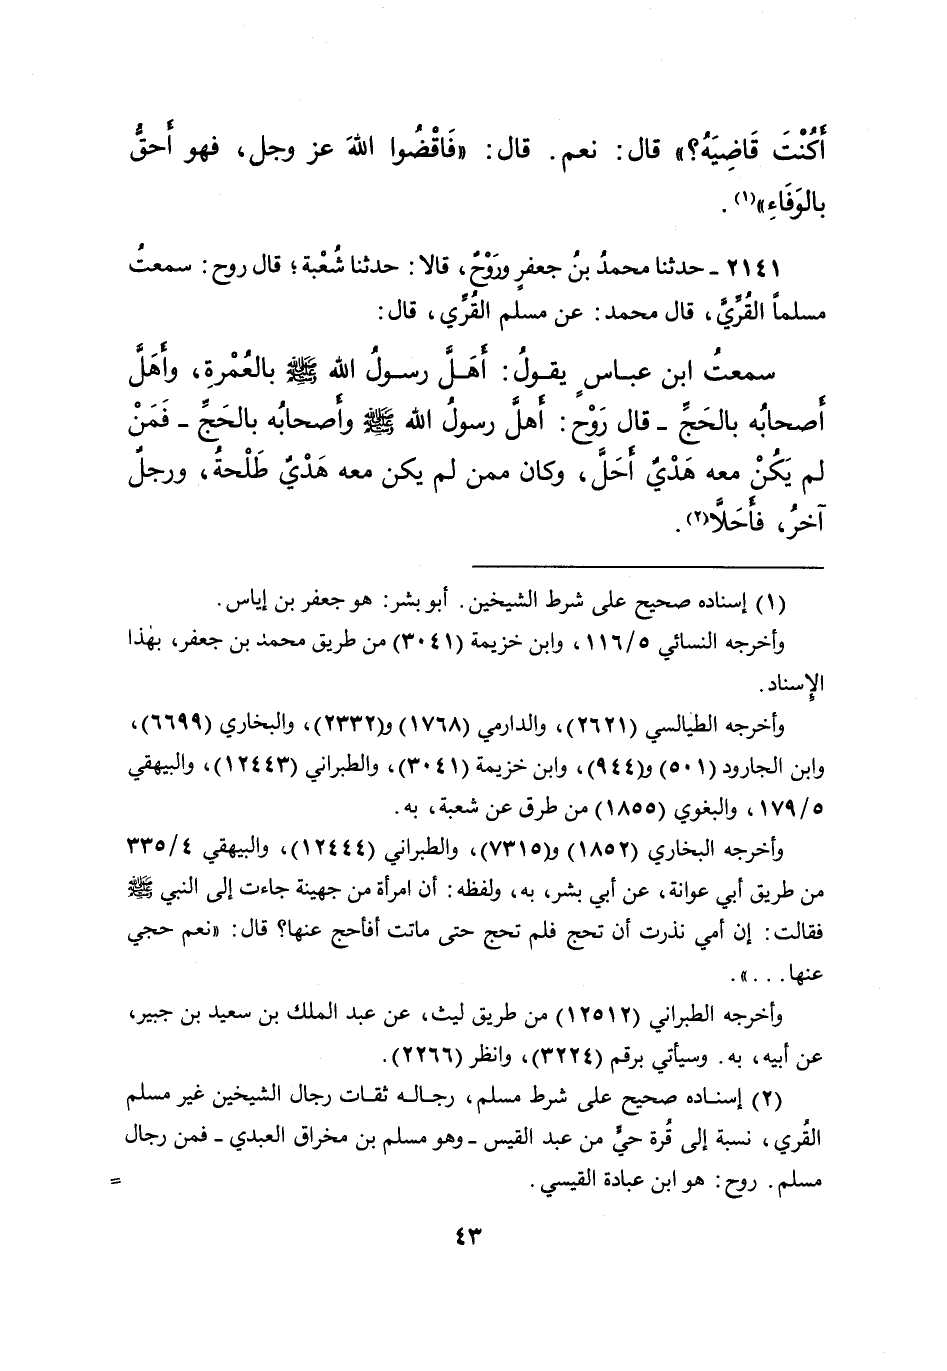 أَكُنْتَ قَاضِيَهُ؟» قال: نعم. قال: «فَاقْضُوا اللهَ عز وجل، فهو أَحقُّ
بالوَفَاءِ»(١).
٢١٤١ ـ حدثنا محمدُ بنُ جعفرٍ ورَوْحٌ، قالا: حدثنا شُعْبة؛ قال روح: سمعتُ
مسلماً القُرِّيَّ، قال محمد: عن مسلم القُرِّي، قال:
سمعتُ ابن عباسٍ يقولُ: أَهَلَّ رسولُ الله ﷺ بالعُمْرةِ، وأَهَلَّ
أَصحابُه بالحَجِّ ـ قال رَوْح: أَهلَّ رسولُ الله ﷺ وأَصحابُه بالحَجِّ ـ فَمَنْ
لم يَكُنْ معه هَدْيٌ أَحَلَّ، وكان ممن لم يكن معه هَدْيٌ طَلْحةُ، ورجلٌ
آخرُ، فأَحَلَّا(٢).
(١) إسناده صحيح على شرط الشيخين. أبو بشر: هو جعفر بن إياس.
وأخرجه النسائي ١١٦/٥، وابن خزيمة (٣٠٤١) من طريق محمد بن جعفر، بهٰذا
الإسناد.
وأخرجه الطيالسي (٢٦٢١)، والدارمي (١٧٦٨) و(٢٣٣٢)، والبخاري (٦٦٩٩)،
وابن الجارود (٥٠١) و(٩٤٤)، وابن خزيمة (٣٠٤١)، والطبراني (١٢٤٤٣)، والبيهقي
١٧٩/٥، والبغوي (١٨٥٥) من طرق عن شعبة، به.
وأخرجه البخاري (١٨٥٢) و(٧٣١٥)، والطبراني (١٢٤٤٤)، والبيهقي ٣٣٥/٤
من طريق أبي عوانة، عن أبي بشر، به، ولفظه: أن امرأة من جهينة جاءت إلى النبي ﷺ
فقالت: إن أمي نذرت أن تحج فلم تحج حتى ماتت أفأحج عنها؟ قال: «نعم حجي
عنها...».
وأخرجه الطبراني (١٢٥١٢) من طريق ليث، عن عبد الملك بن سعيد بن جبير،
عن أبيه، به. وسيأتي برقم (٣٢٢٤)، وانظر (٢٢٦٦).
(٢) إسناده صحيح على شرط مسلم، رجاله ثقات رجال الشيخين غير مسلم
القُري، نسبة إلى قُرة حيٌّ من عبد القيس ـ وهو مسلم بن مخراق العبدي ـ فمن رجال
مسلم. روح: هو ابن عبادة القيسي. =
٤٣